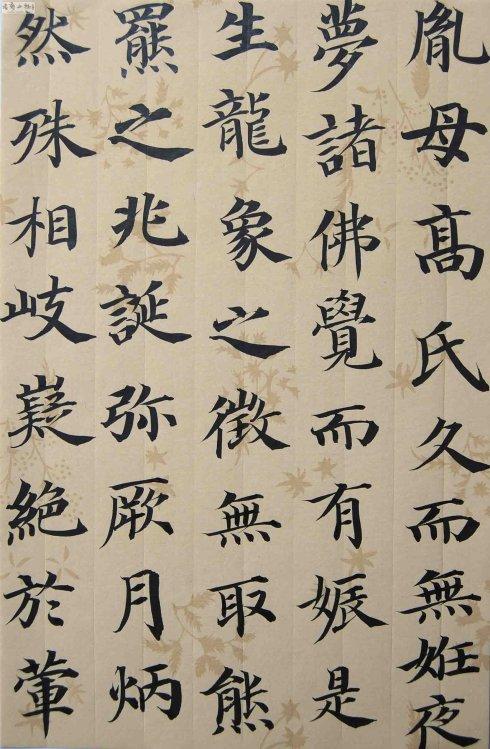 胤母髙氏久而無姙夜
夢諸佛覺而有娠是
生龍象之徵無取熊
羆之兆誕弥厥月炳
然殊相岐嶷絶於葷